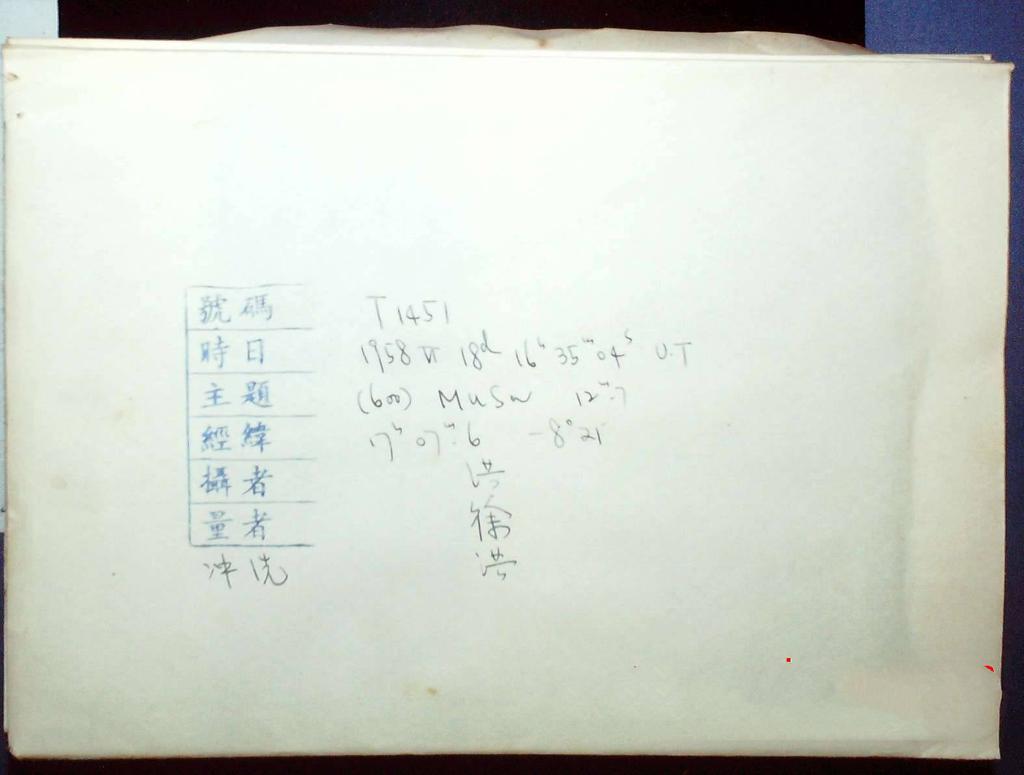 號碼 T1451
時日 1958 VI 18d 16h 35m 04s U.T
主題 (600) Musa 12m.7
經緯 17h 07m.6 -8° 21'
攝者 洪
量者 徐
冲洗 洪